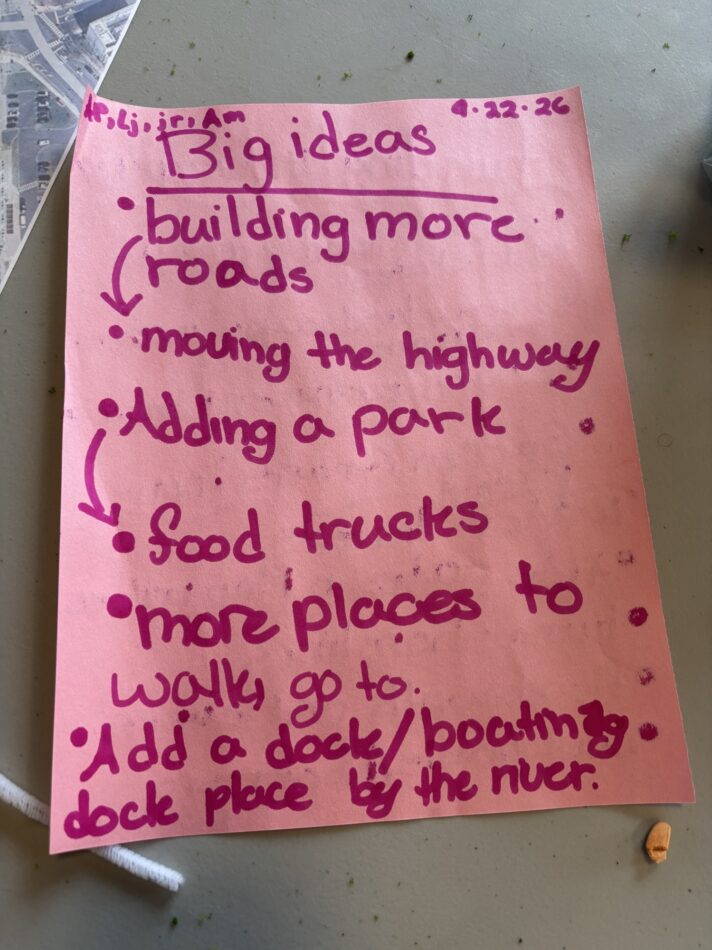 AP, Lj, jr, Am 4.22.26
Big ideas
• building more
roads
• moving the highway
• Adding a park
• food trucks
• more places to
walk, go to.
• Add a dock/boating
dock place by the river.